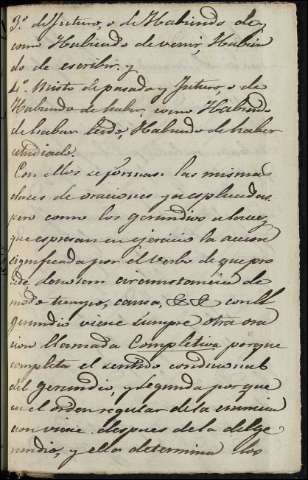 3.º de futuro, o de Habiendo de,
como Habiendo de venir, Habien
do de escribir, y
4.º Misto de pasado y futuro, o de
Habiendo de haber, como Habiendo
de haber leido, Habiendo de haber
estudiado.
Con ellos se forman las mismas
clases de oraciones ya esplicadas,
pero como los gerundios
que espresan en ejercicio la accion
significada por el verbo de que pro
ceden circunstancias de
modo tiempo, causa, &.&. con el
gerundio viene siempre otra ora
cion llamada Completiva porque
completa el sentido condicional
del gerundio, y segunda porque
en el orden regular de la enuncia
cion viene despues de la del ge
rundio, y ellas determina los